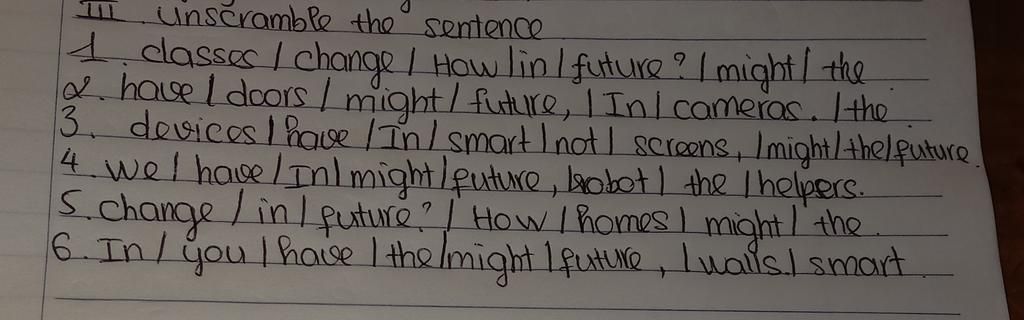 III. Unscramble the sentence
1. classes / change / How / in / future? / might / the
2. have / doors / might / future, / In / cameras. / the
3. devices / have / In / smart / not / screens, / might / the / future.
4. we / have / In / might / future, robot / the / helpers.
5. change / in / future? / How / homes / might / the.
6. In / you / have / the / might / future, / walls. / smart